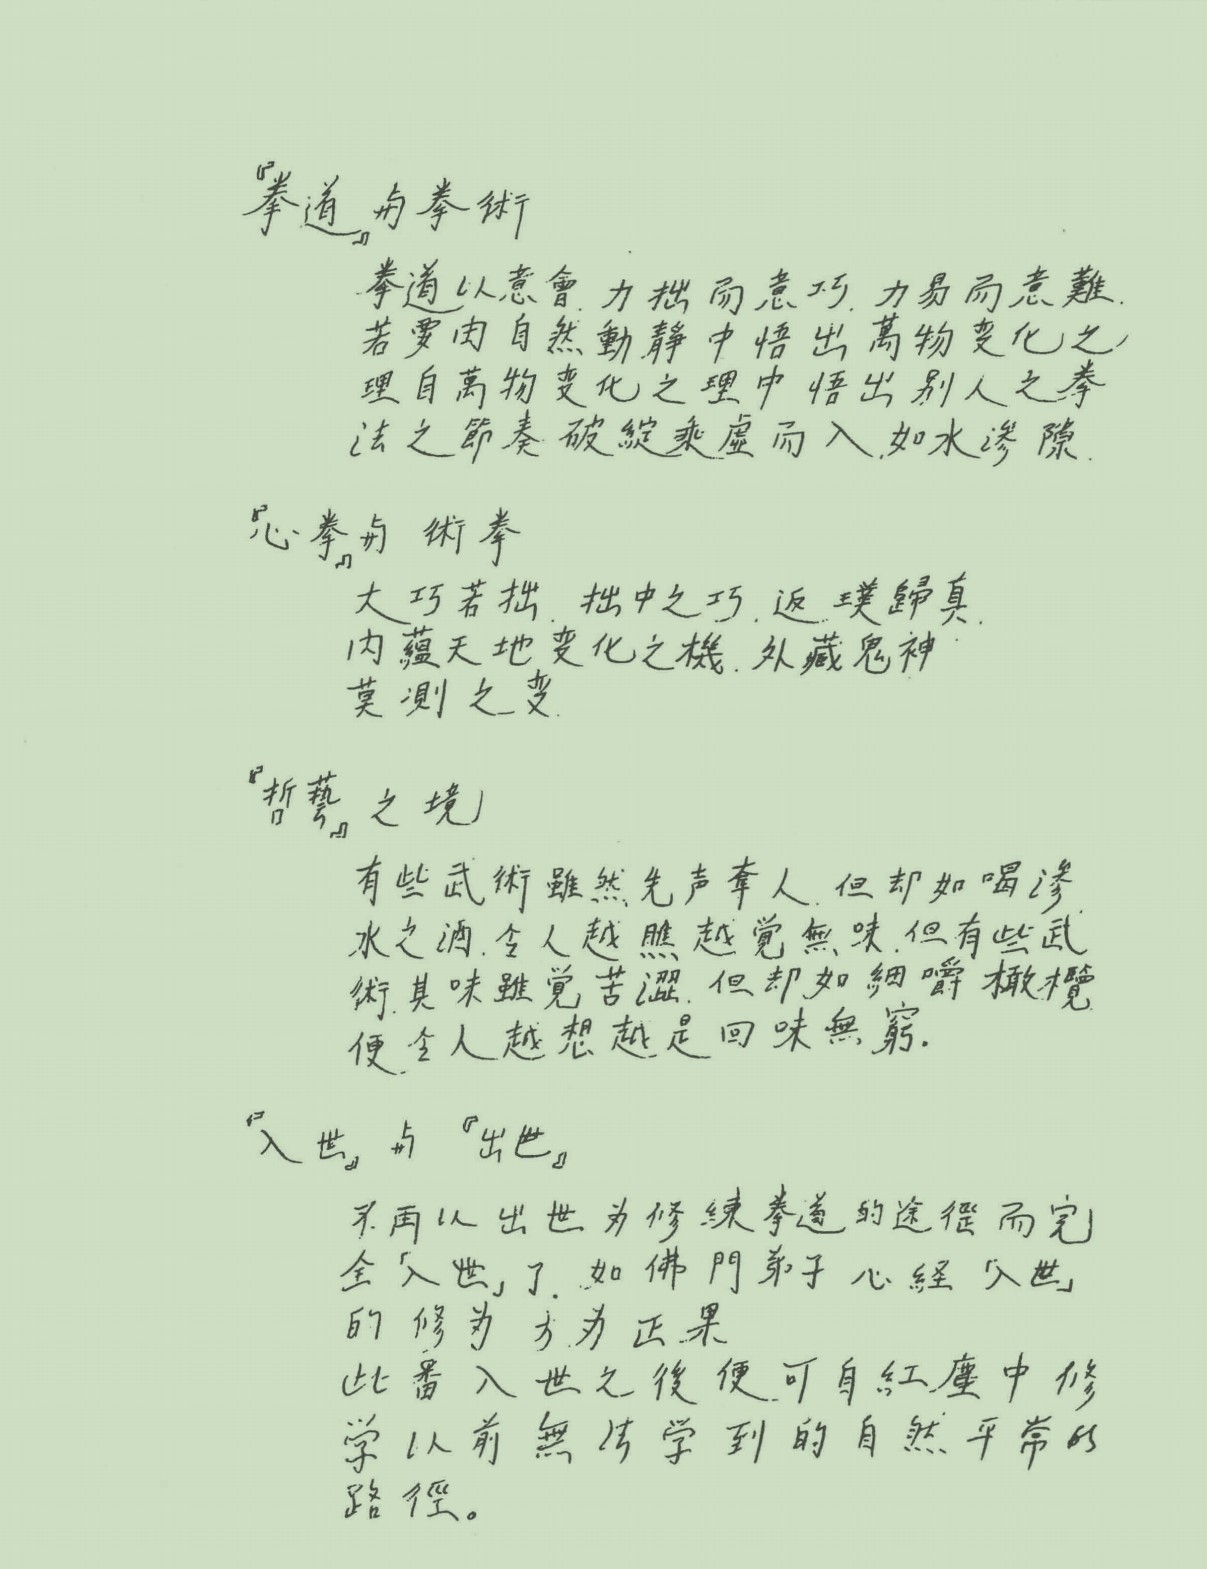 『拳道』与拳術
拳道以意會.力拙而意巧.力易而意難.
若要由自然動靜中悟出萬物变化之
理自萬物变化之理中悟出别人之拳
法之節奏破綻乘虛而入.如水滲隙.
『心拳』与術拳
大巧若拙.拙中之巧.返璞歸真.
内蘊天地变化之機.外藏鬼神
莫測之变.
『哲藝』之境
有些武術雖然先声奪人.但却如喝滲
水之酒.令人越瞧越覚無味.但有些武
術.其味雖覚苦澀.但却如細嚼橄欖
便令人越想越是回味無窮.
『入世』与『出世』
不再以出世为修練拳道的途徑而完
全「入世」了.如佛門弟子心経「入世」
的修为方为正果
此番入世之後便可自紅塵中修
学以前無法学到的自然平常的
路徑。